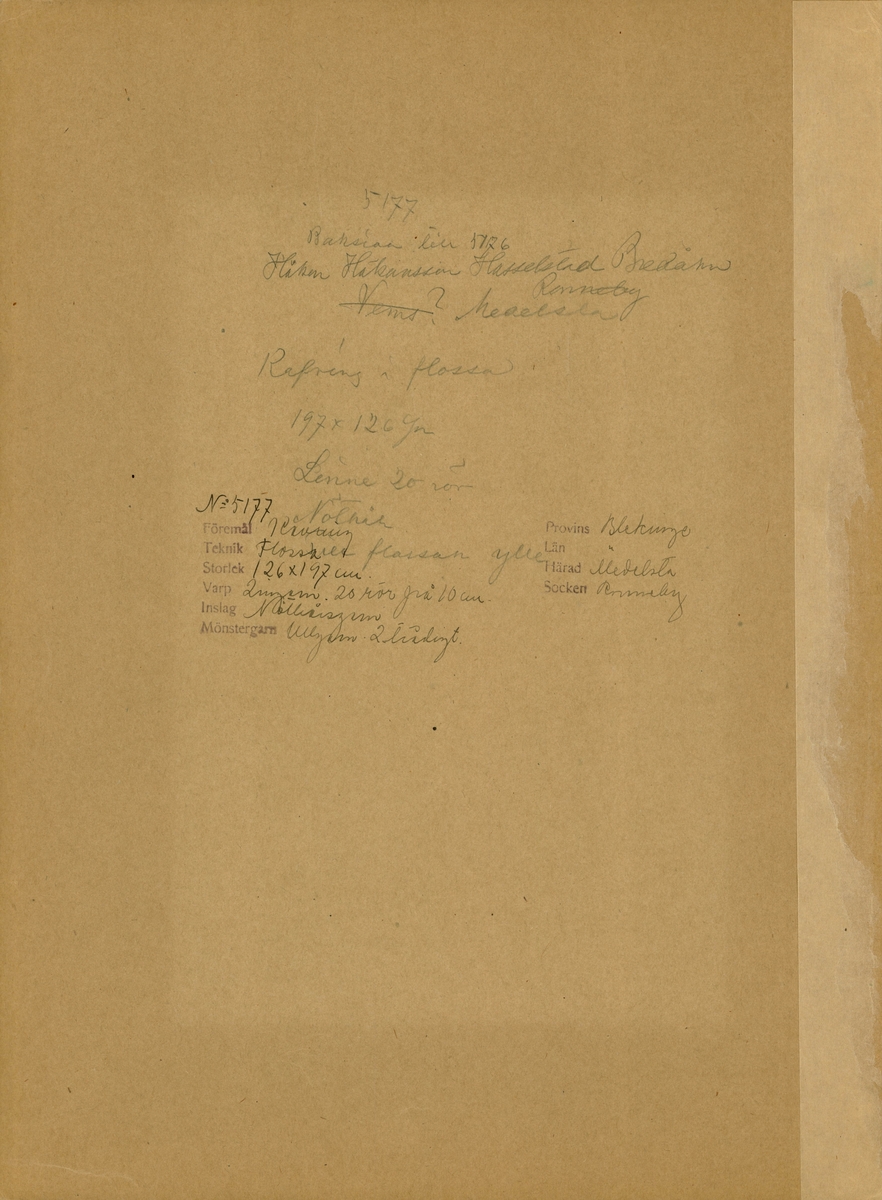 5177
Baksidan till 5176
Håkan Håkansson Hasselstad Bredåkra
Ronneby
Vems? Medelsta
i flossa
197 x 126 cm
Linne 20 rör
Nöthår
flossan ylle
No 5177
Föremål
Teknik Flossa
Storlek 126 x 197 cm.
Varp Lingarn. 20 rör på 10 cm.
Inslag Nöthårsgarn
Mönstergarn Ullgarn 2 trådigt.
Provins Blekinge
Län "
Härad Medelsta
Socken Ronneby